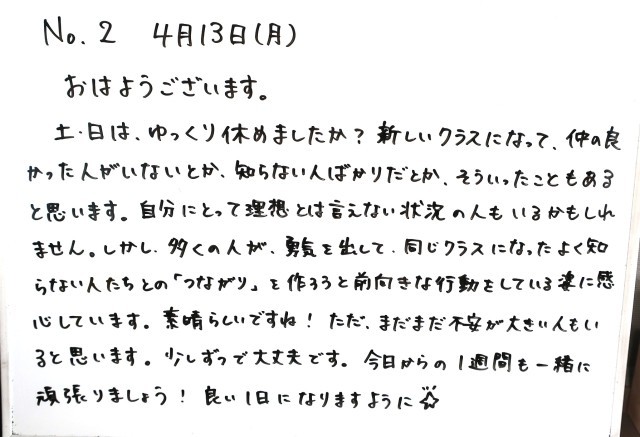 No.2 4月13日(月)
おはようございます。
土・日は、ゆっくり休めましたか？新しいクラスになって、仲の良
かった人がいないとか、知らない人ばかりだとか、そういったこともある
と思います。自分にとって理想とは言えない状況の人もいるかもしれ
ません。しかし、多くの人が、勇気を出して、同じクラスになったよく知
らない人たちとの「つながり」を作ろうと前向きな行動をしている姿に感
心しています。素晴らしいですね！ただ、まだまだ不安が大きい人もい
ると思います。少しずつで大丈夫です。今日からの1週間も一緒に
頑張りましょう！良い1日になりますように☆